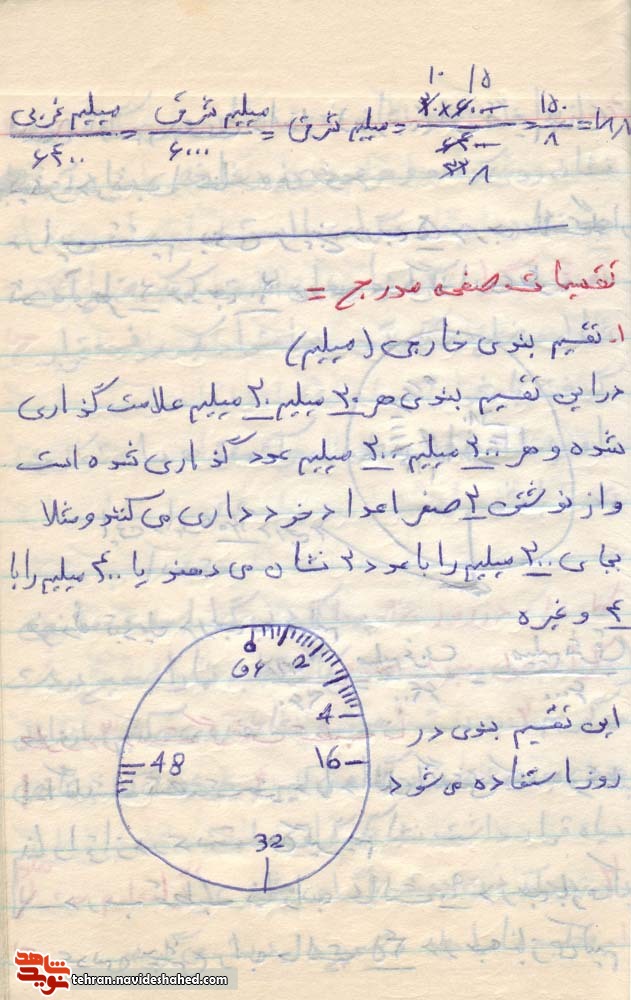 میلیم غربی / ۶۴۰۰ = میلیم شرق / ۶۰۰۰ = میلیم شرق = ۲۰×۶۰۰۰ / ۶۴۰۰ = ۱۵۰ / ۸ = ۱۸/۸
۱۰ ۱۵
۳۲ ۸
تقسیمات صفحه مدرج =
۱- تقسیم بندی خارجی (میلیم)
در این تقسیم بندی هر ۲۰ میلیم ۲۰ میلیم علامت گذاری
شده و هر ۲۰۰ میلیم ۲۰۰ میلیم عدد گذاری شده است
و از نوشتن ۲ صفر اعداد خود داری می کنند و مثلا
بجای ۲۰۰ میلیم را با عدد ۲ نشان می دهند یا ۴۰۰ میلیم را با
۴ و غیره
0 2
4
این تقسیم بندی در
48 16 روز استفاده می شود
32
شاهد
نوید
tehran.navideshahed.com